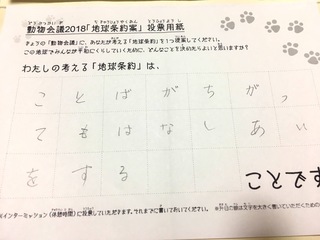 動物会議2018「地球条約案」投票用紙
きょうの「動物会議」に、あなたが考える「地球条約」を1つ提案してください。
この地球でみんなが平和にくらしていくために、どんなことを決めたらよいと思いますか？
わたしの考える「地球条約」は、
ことばがちがっ
てもはなしあい
をする
すべてこと
(インターミッション(休憩時間)に投票していただきます。それまでに書いておいてください。